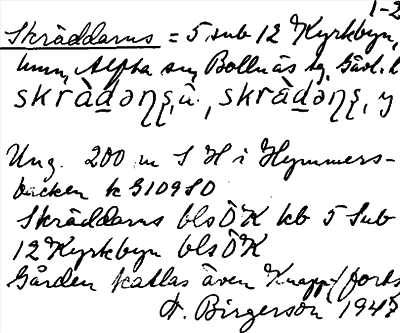 1-2
Skräddarns = 5 sub 12 Kyrkbyn,
hmn, Alfta sn, Bollnäs tg, Gävl. l
skrädəɳʂ, ù, skrädəɳʂ, y
Ung. 200 m S H i Hymmers-
backen k G109 S0
Skräddarns bls ÖK kb 5 Sub
12 Kyrkbyn bls ÖK
Gården kallas även Knapp-(forts
A. Birgerson 1947